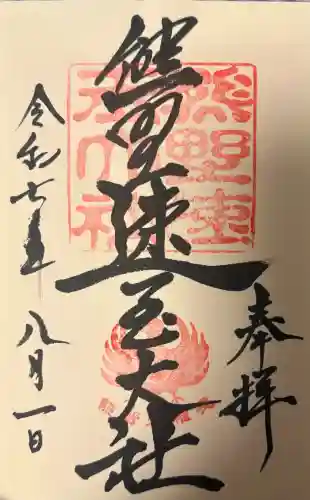 奉拝
熊野速玉大社
令和七年
八月一日
熊野速玉大社